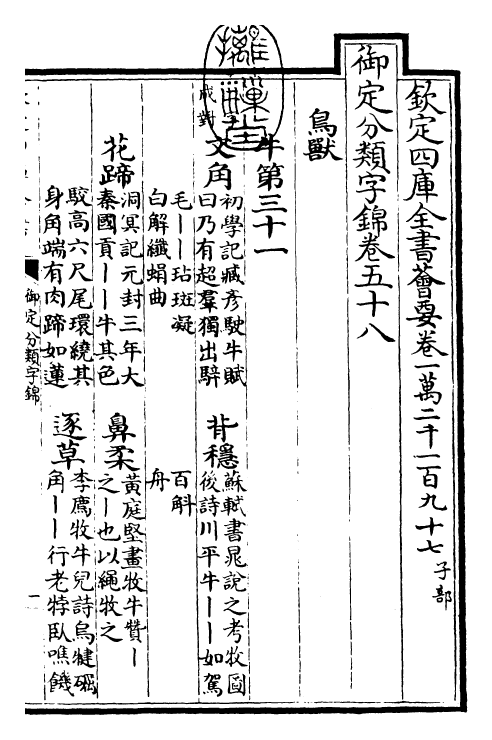 欽定四庫全書薈要卷一萬二千一百九十七 子部
御定分類字錦卷五十八
鳥獸
牛第三十一
成對
文角 初學記臧彥駛牛賦
曰乃有超羣獨出騂
毛一一玷斑凝
白解纖蝸曲
背穩 蘇軾書晁說之考牧圖
後詩川平牛一一如駕
百斛
舟
花蹄 洞冥記元封三年大
秦國貢一一牛其色
駮高六尺尾環繞其
身角端有肉蹄如蓮
鼻柔 黃庭堅畫牧牛贊一
之一也以繩牧之
逐草 李廌牧牛兒詩烏犍礪
角一一行老牸臥噍饑
御定分類字錦
一